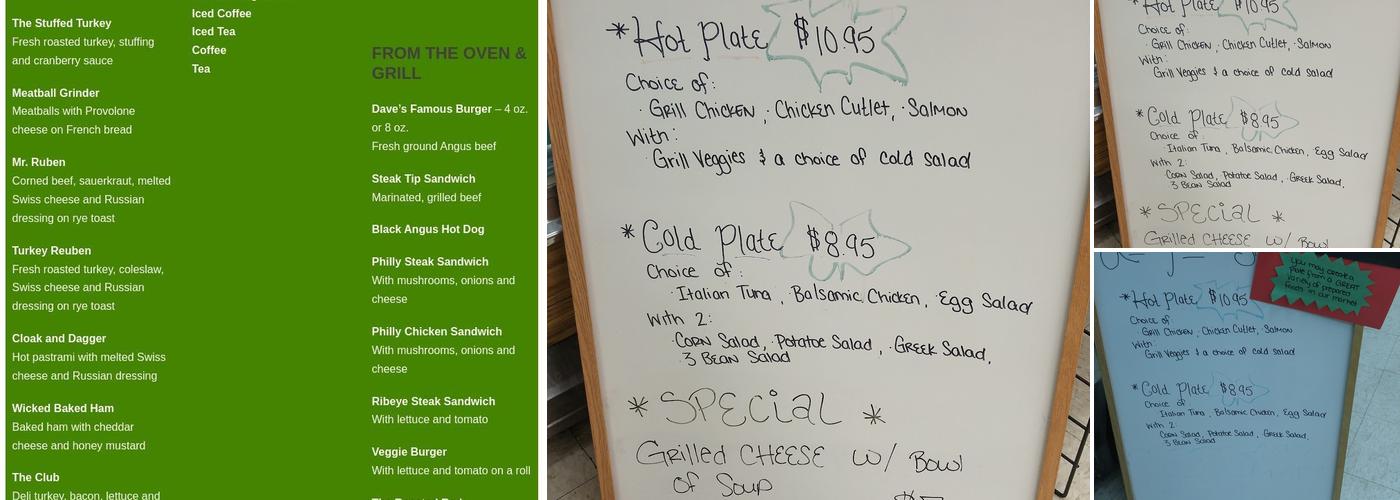 The Stuffed Turkey
Fresh roasted turkey, stuffing
and cranberry sauce
Meatball Grinder
Meatballs with Provolone
cheese on French bread
Mr. Ruben
Corned beef, sauerkraut, melted
Swiss cheese and Russian
dressing on rye toast
Turkey Reuben
Fresh roasted turkey, coleslaw,
Swiss cheese and Russian
dressing on rye toast
Cloak and Dagger
Hot pastrami with melted Swiss
cheese and Russian dressing
Wicked Baked Ham
Baked ham with cheddar
cheese and honey mustard
The Club
Deli turkey, bacon, lettuce and
Iced Coffee
Iced Tea
Coffee
Tea
FROM THE OVEN &
GRILL
Dave's Famous Burger – 4 oz.
or 8 oz.
Fresh ground Angus beef
Steak Tip Sandwich
Marinated, grilled beef
Black Angus Hot Dog
Philly Steak Sandwich
With mushrooms, onions and
cheese
Philly Chicken Sandwich
With mushrooms, onions and
cheese
Ribeye Steak Sandwich
With lettuce and tomato
Veggie Burger
With lettuce and tomato on a roll
* Hot Plate $10.95
Choice of:
· Grill Chicken, · Chicken Cutlet, · Salmon
With:
· Grill Veggies & a choice of cold salad
* Cold Plate $8.95
Choice of:
· Italian Tuna, Balsamic Chicken, · Egg Salad
With 2:
· Corn Salad, · Potatoe Salad, · Greek Salad,
· 3 Bean Salad
* SPECial *
Grilled CHEESE w/ Bowl
of Soup
Hot Plate $10.95
Choice of:
· Grill Chicken, · Chicken Cutlet, · Salmon
With:
Grill Veggies & a choice of cold salad
* Cold Plate $8.95
Choice of:
· Italian Tuna, Balsamic Chicken, · Egg Salad
With 2:
Corn Salad, Potatoe Salad, · Greek Salad,
3 Bean Salad
* SPECial *
Grilled CHEESE w/ Bowl
You may create a
plate from a GREAT
variety of prepared
foods in our market
* Hot Plate $10.95
Choice of:
Grill Chicken, · Chicken Cutlet, · Salmon
With:
Grill Veggies & a choice of cold salad
* Cold Plate $8.95
Choice of
Italian Tuna, Balsamic Chicken, Egg Salad
With 2:
Corn Salad, Potatoe Salad, Greek Salad,
3 Bean Salad